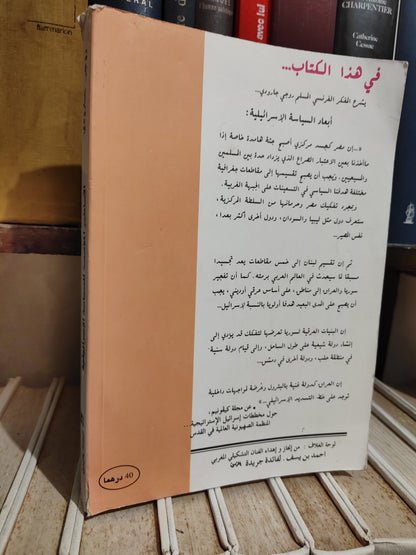 flammarion
HAL
avec lui
CHARPENTIER
Catherine
Cusson
في هذا الكتاب...
يشرح المفكر الفرنسي المسلم روجي جارودي..
أبعاد السياسة الإسرائيلية :
«...إن مصر كجسد مركزي أصبح جثة هامدة خاصة إذا
ما أخذنا بعين الاعتبار الصراع الذي يزداد حدة بين المسلمين
والمسيحيين. ويجب أن يصبح تقسيمها إلى مقاطعات جغرافية
مختلفة هدفنا السياسي في التسعينات على الجبهة الغربية.
وبمجرد تفكيك مصر وحرمانها من السلطة المركزية،
ستعرف دول مثل ليبيا والسودان، ودول أخرى أكثر بعدا،
نفس المصير...
ثم إن تقسيم لبنان إلى خمس مقاطعات يعد تجسيدا
مسبقا لما سيحدث في العالم العربي برمته. كما أن تفجير
سوريا والعراق إلى مناطق، على أساس عرقي أو ديني، يجب
أن يصبح على المدى البعيد هدفا أولويا بالنسبة لإسرائيل...
إن البنيات العرقية لسوريا تعرضها لتفكك قد يؤدي إلى
إنشاء دولة شيعية على طول الساحل، وإلى قيام دولة سنية
في منطقة حلب، ودولة أخرى في دمشق...
إن العراق، كدولة غنية بالبترول وعرضة لمواجهات داخلية
توجد على خط التسديد الإسرائيلي...»
عن مجلة كيفونيم،
حول مخططات إسرائيل الإستراتيجية..
المنظمة الصهيونية العالمية في القدس
لوحة الغلاف : من إنجاز وإهداء الفنان التشكيلي المغربي
احمد بن يسف. لفائدة جريدة
40 درهما